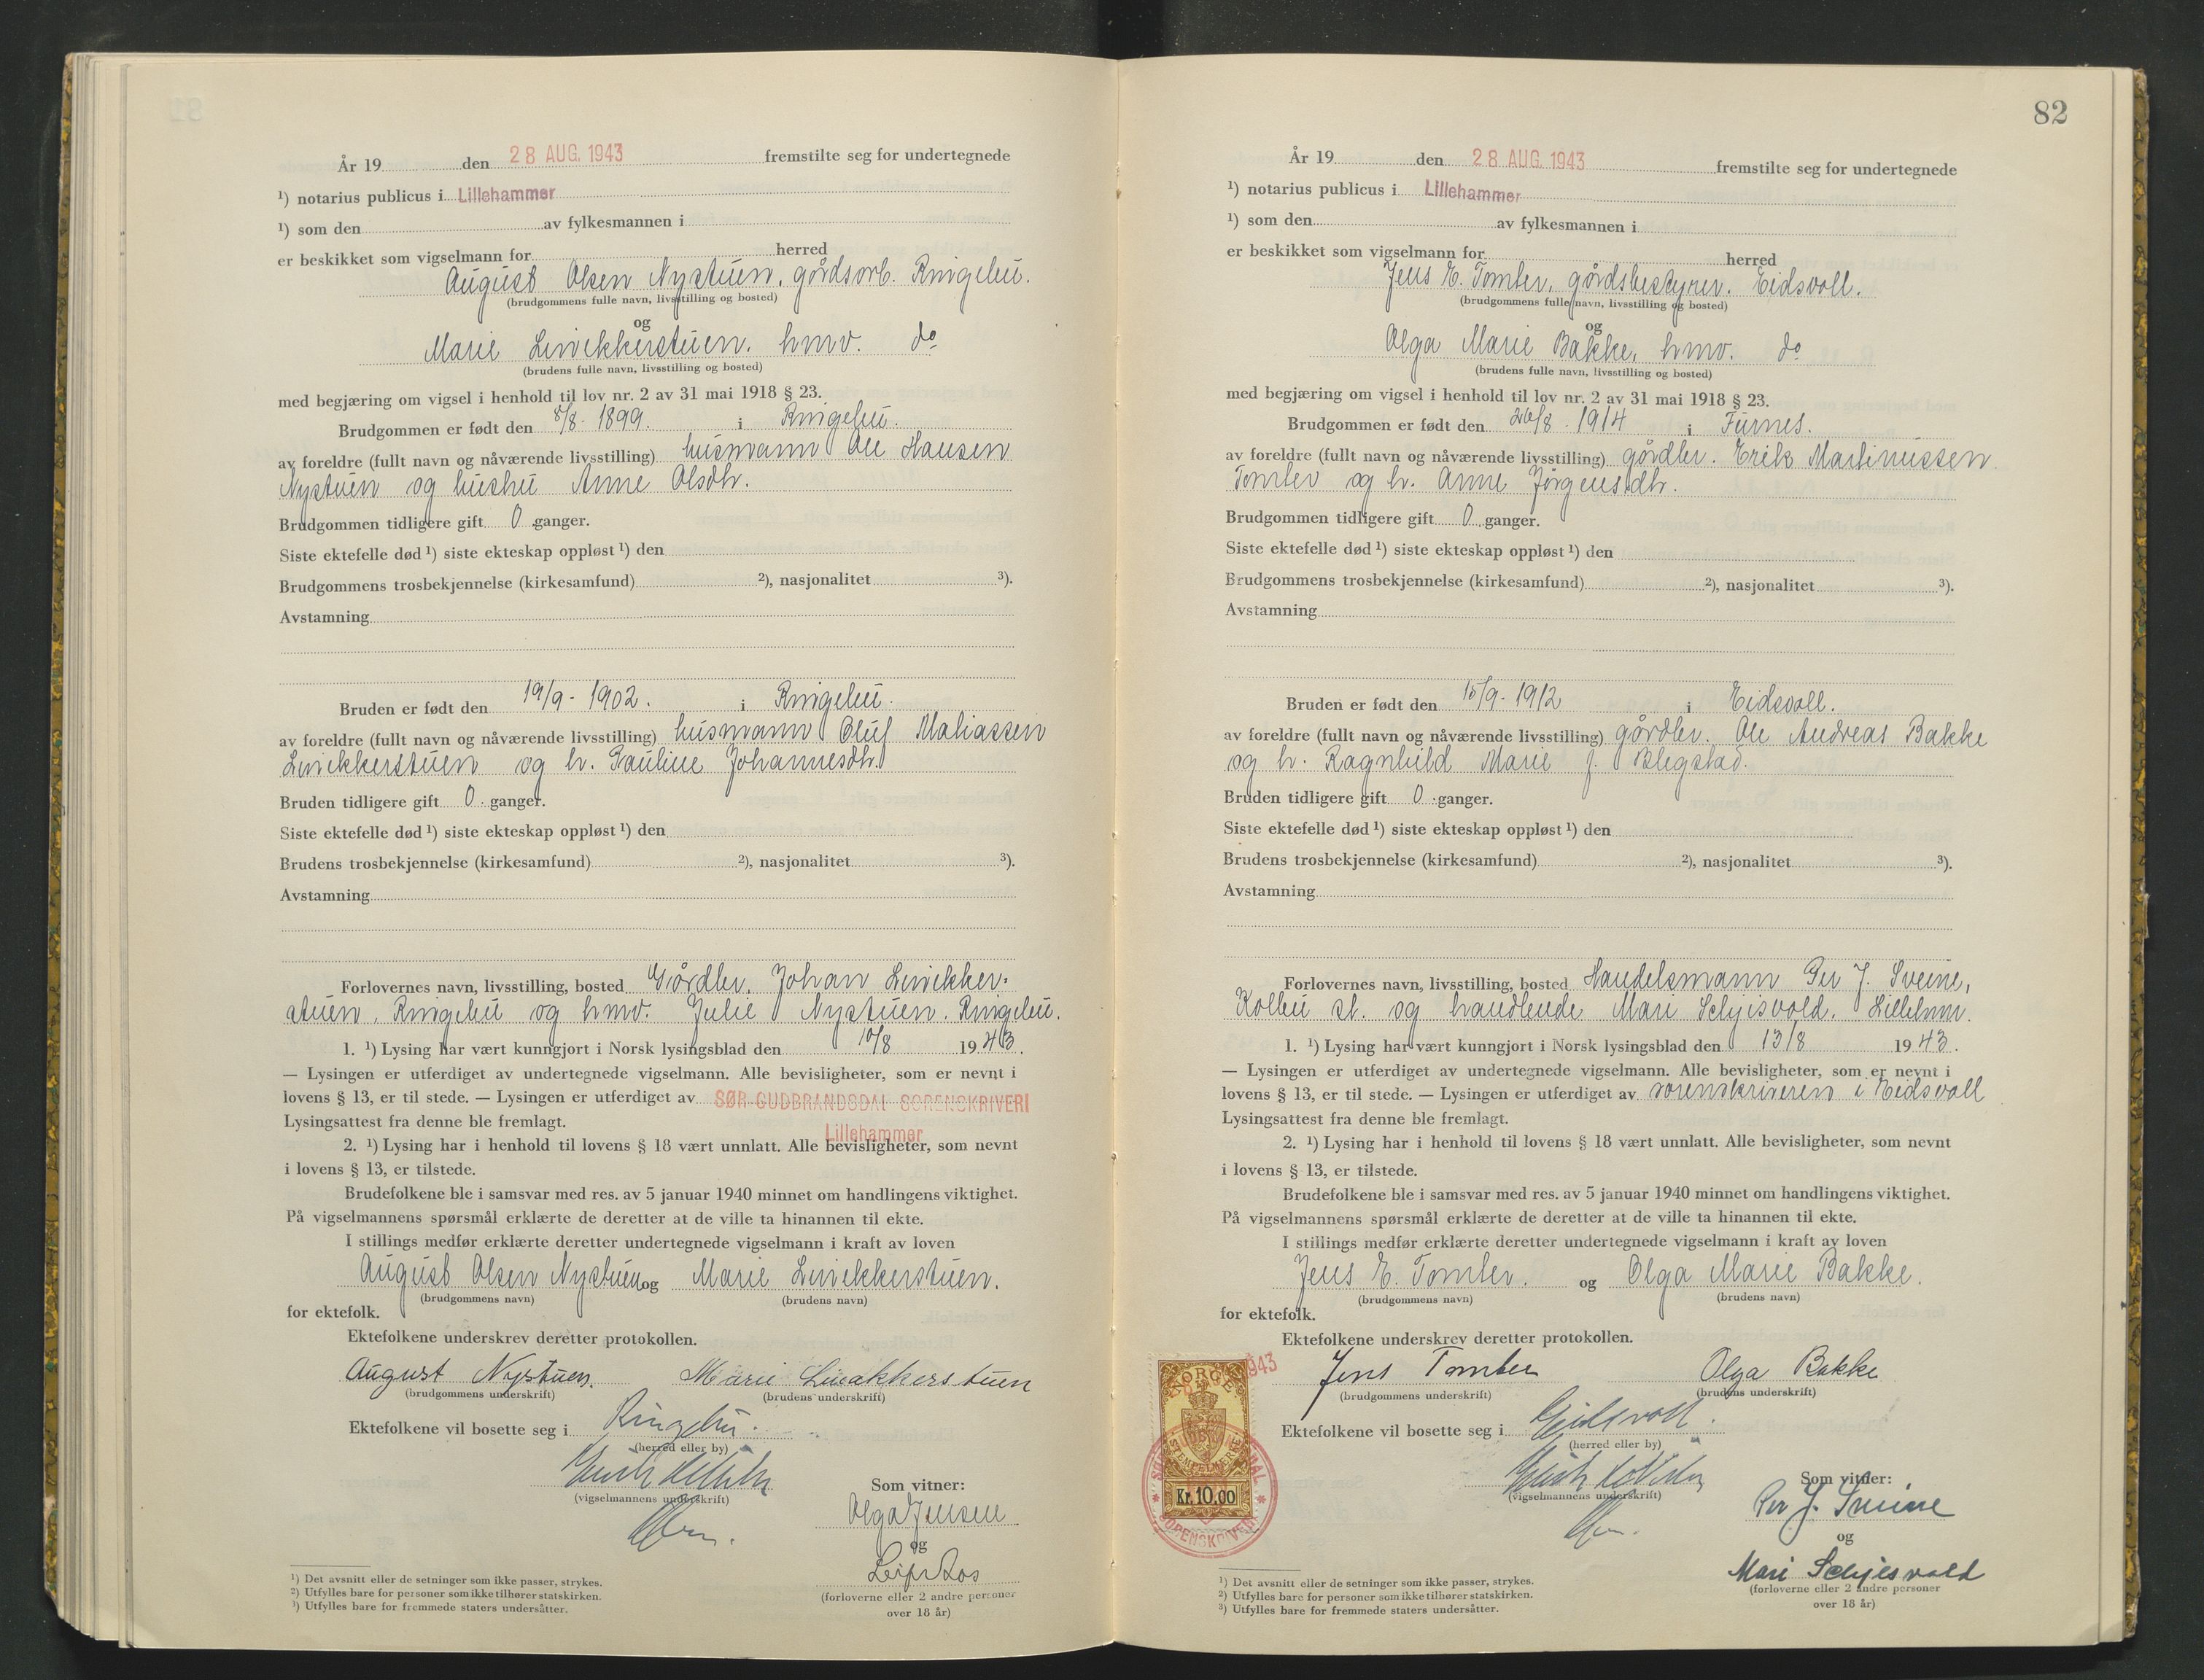 År 19 den 28 AUG. 1943 fremstilte seg for undertegnede
¹) notarius publicus i Lillehammer
¹) som den av fylkesmannen i
er beskikket som vigselmann for herred
August Olsen Nystuen, gårdsarb. Ringebu.
(brudgommens fulle navn, livsstilling og bosted)
og
Marie Linvikkerstuen, hmv. do
(brudens fulle navn, livsstilling og bosted)
med begjæring om vigsel i henhold til lov nr. 2 av 31 mai 1918 § 23.
Brudgommen er født den 8/8 - 1899. i Ringebu.
av foreldre (fullt navn og nåværende livsstilling) husmann Ole Hansen
Nystuen og hushu Anne Olsdtr.
Brudgommen tidligere gift 0 ganger.
Siste ektefelle død ¹) siste ekteskap oppløst ¹) den
Brudgommens trosbekjennelse (kirkesamfund) ²), nasjonalitet ³).
Avstamning
Bruden er født den 19/9 - 1902. i Ringebu.
av foreldre (fullt navn og nåværende livsstilling) husmann Oluf Matiassen
og h. Pauline Johannesdtr.
Bruden tidligere gift 0 ganger.
Siste ektefelle død ¹) siste ekteskap oppløst ¹) den
Brudens trosbekjennelse (kirkesamfund) ²), nasjonalitet ³).
Avstamning
Forlovernes navn, livsstilling, bosted Gårdbr. Johan
stuen, Ringebu og hmv. Julie Nystuen, Ringebu.
1. ¹) Lysing har vært kunngjort i Norsk lysingsblad den 10/8 1943.
— Lysingen er utferdiget av undertegnede vigselmann. Alle bevisligheter, som er nevnt i
lovens § 13, er til stede. — Lysingen er utferdiget av SØR-GUDBRANDSDAL SORENSKRIVERI
Lysingsattest fra denne ble fremlagt.
Lillehammer
2. ¹) Lysing har i henhold til lovens § 18 vært unnlatt. Alle bevisligheter, som nevnt
i lovens § 13, er tilstede.
Brudefolkene ble i samsvar med res. av 5 januar 1940 minnet om handlingens viktighet.
På vigselmannens spørsmål erklærte de deretter at de ville ta hinannen til ekte.
I stillings medfør erklærte deretter undertegnede vigselmann i kraft av loven
August Olsen Nystuen og Marie
(brudgommens navn) (brudens navn)
for ektefolk.
Ektefolkene underskrev deretter protokollen.
August Nystuen. Marie
(brudgommens underskrift) (brudens underskrift)
Ektefolkene vil bosette seg i Ringebu.
(herred eller by)
(vigselmannens underskrift)
Som vitner:
Olga Jensen
og
Leif Aos
(forloverne eller 2 andre personer
over 18 år)
¹) Det avsnitt eller de setninger som ikke passer, strykes.
²) Utfylles bare for personer som ikke tilhører statskirken.
³) Utfylles bare for fremmede staters undersåtter.
82
År 19 den 28 AUG. 1943 fremstilte seg for undertegnede
¹) notarius publicus i Lillehammer
¹) som den av fylkesmannen i
er beskikket som vigselmann for herred
Jens E. Tomter, gårdsbestyrer. Eidsvoll.
(brudgommens fulle navn, livsstilling og bosted)
og
Olga Marie Bakke, hmv. do
(brudens fulle navn, livsstilling og bosted)
med begjæring om vigsel i henhold til lov nr. 2 av 31 mai 1918 § 23.
Brudgommen er født den 26/8 - 1914 i Furnes.
av foreldre (fullt navn og nåværende livsstilling) gårdbr. Erik Martinussen
Tomter og h. Anne Jörgensdtr.
Brudgommen tidligere gift 0 ganger.
Siste ektefelle død ¹) siste ekteskap oppløst ¹) den
Brudgommens trosbekjennelse (kirkesamfund) ²), nasjonalitet ³).
Avstamning
Bruden er født den 15/9 - 1912 i Eidsvoll.
av foreldre (fullt navn og nåværende livsstilling) gårdbr. Ole Andreas Bakke
og h. Ragnhild Marie f. Blegstad.
Bruden tidligere gift 0 ganger.
Siste ektefelle død ¹) siste ekteskap oppløst ¹) den
Brudens trosbekjennelse (kirkesamfund) ²), nasjonalitet ³).
Avstamning
Forlovernes navn, livsstilling, bosted Handelsmann Per J. Sveine,
Kolbu st. og handlende Mari Seljesvold, Lillehmr.
1. ¹) Lysing har vært kunngjort i Norsk lysingsblad den 13/8 1943.
— Lysingen er utferdiget av undertegnede vigselmann. Alle bevisligheter, som er nevnt i
lovens § 13, er til stede. — Lysingen er utferdiget av sorenskriveren i Eidsvoll
Lysingsattest fra denne ble fremlagt.
2. ¹) Lysing har i henhold til lovens § 18 vært unnlatt. Alle bevisligheter, som nevnt
i lovens § 13, er tilstede.
Brudefolkene ble i samsvar med res. av 5 januar 1940 minnet om handlingens viktighet.
På vigselmannens spørsmål erklærte de deretter at de ville ta hinannen til ekte.
I stillings medfør erklærte deretter undertegnede vigselmann i kraft av loven
Jens E. Tomter. og Olga Marie Bakke.
(brudgommens navn) (brudens navn)
for ektefolk.
Ektefolkene underskrev deretter protokollen.
Jens Tomter Olga Bakke
(brudgommens underskrift) (brudens underskrift)
Ektefolkene vil bosette seg i Eidsvoll.
(herred eller by)
(vigselmannens underskrift)
Som vitner:
Per J. Sveine
og
Mari Seljesvold
(forloverne eller 2 andre personer
over 18 år)
1943
NORGE
STEMPELMERKE
Kr. 10.00
SORENSKRIVERI
¹) Det avsnitt eller de setninger som ikke passer, strykes.
²) Utfylles bare for personer som ikke tilhører statskirken.
³) Utfylles bare for fremmede staters undersåtter.